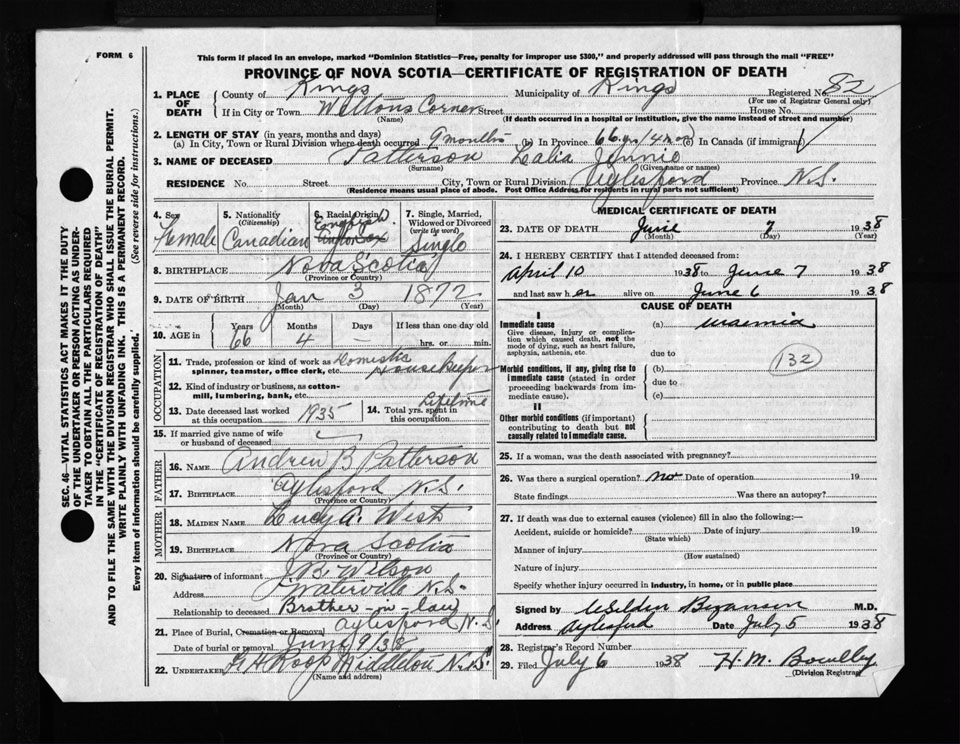 FORM 6
This form if placed in an envelope, marked "Dominion Statistics—Free, penalty for improper use $300," and properly addressed will pass through the mail "FREE"
PROVINCE OF NOVA SCOTIA—CERTIFICATE OF REGISTRATION OF DEATH
1. PLACE OF DEATH
County of Kings Municipality of Kings Registered No. 82
(For use of Registrar General only)
If in City or Town Weltons Corner Street House No.
(Name) (If death occurred in a hospital or institution, give the name instead of street and number)
2. LENGTH OF STAY (in years, months and days)
(a) In City, Town or Rural Division where death occurred 9 months (b) In Province 66 yr/4 mo (c) In Canada (if immigrant)
3. NAME OF DECEASED Patterson Lalia Jennie
(Surname) (Given name or names)
RESIDENCE No. Street City, Town or Rural Division Aylesford Province N.S.
(Residence means usual place of abode. Post Office Address for residents in rural parts not sufficient)
4. Sex Female
5. Nationality (Citizenship) Canadian
6. Racial Origin English
7. Single, Married, Widowed or Divorced (write the word) Single
8. BIRTHPLACE Nova Scotia
(Province or Country)
9. DATE OF BIRTH Jan 3 1872
(Month) (Day) (Year)
10. AGE in Years 66 Months 4 Days — If less than one day old hrs. or min.
OCCUPATION
11. Trade, profession or kind of work as Domestic
spinner, teamster, office clerk, etc. Housekeeper
12. Kind of industry or business, as cotton-mill, lumbering, bank, etc.
13. Date deceased last worked at this occupation 1935
14. Total yrs. spent in this occupation Lifetime
15. If married give name of wife or husband of deceased
FATHER
16. NAME Andrew B Patterson
17. BIRTHPLACE Aylesford N.S.
(Province or Country)
MOTHER
18. MAIDEN NAME Lucy A. West
19. BIRTHPLACE Nova Scotia
(Province or Country)
20. Signature of informant J B Wilson
Address Waterville N.S.
Relationship to deceased Brother-in-law
21. Place of Burial, Cremation or Removal Aylesford N.S.
Date of burial or removal June 9/38
22. UNDERTAKER Roop Middleton N.S.
(Name and address)
MEDICAL CERTIFICATE OF DEATH
23. DATE OF DEATH June 7 1938
(Month) (Day) (Year)
24. I HEREBY CERTIFY that I attended deceased from:
April 10 1938 to June 7 1938
and last saw her alive on June 6 1938
CAUSE OF DEATH
I
Immediate cause (a) uraemia
Give disease, injury or complication which caused death, not the mode of dying, such as heart failure, asphyxia, asthenia, etc.
due to
132
Morbid conditions, if any, giving rise to immediate cause (stated in order proceeding backwards from immediate cause).
(b)
due to
(c)
II
Other morbid conditions (if important) contributing to death but not causally related to immediate cause.
25. If a woman, was the death associated with pregnancy?
26. Was there a surgical operation? no Date of operation 19
State findings Was there an autopsy?
27. If death was due to external causes (violence) fill in also the following:—
Accident, suicide or homicide? Date of injury 19
(State which)
Manner of injury
(How sustained)
Nature of injury
Specify whether injury occurred in industry, in home, or in public place
Signed by M.D.
Address Aylesford Date July 5 1938
28. Registrar's Record Number
29. Filed July 6 1938 H. M.
(Division Registrar)
SEC. 46—VITAL STATISTICS ACT MAKES IT THE DUTY
OF THE UNDERTAKER OR PERSON ACTING AS UNDER-
TAKER TO OBTAIN ALL THE PARTICULARS REQUIRED
IN THE "CERTIFICATE OF REGISTRATION OF DEATH"
AND TO FILE THE SAME WITH THE DIVISION REGISTRAR WHO SHALL ISSUE THE BURIAL PERMIT.
WRITE PLAINLY WITH UNFADING INK. THIS IS A PERMANENT RECORD.
Every item of information should be carefully supplied. (See reverse side for instructions.)